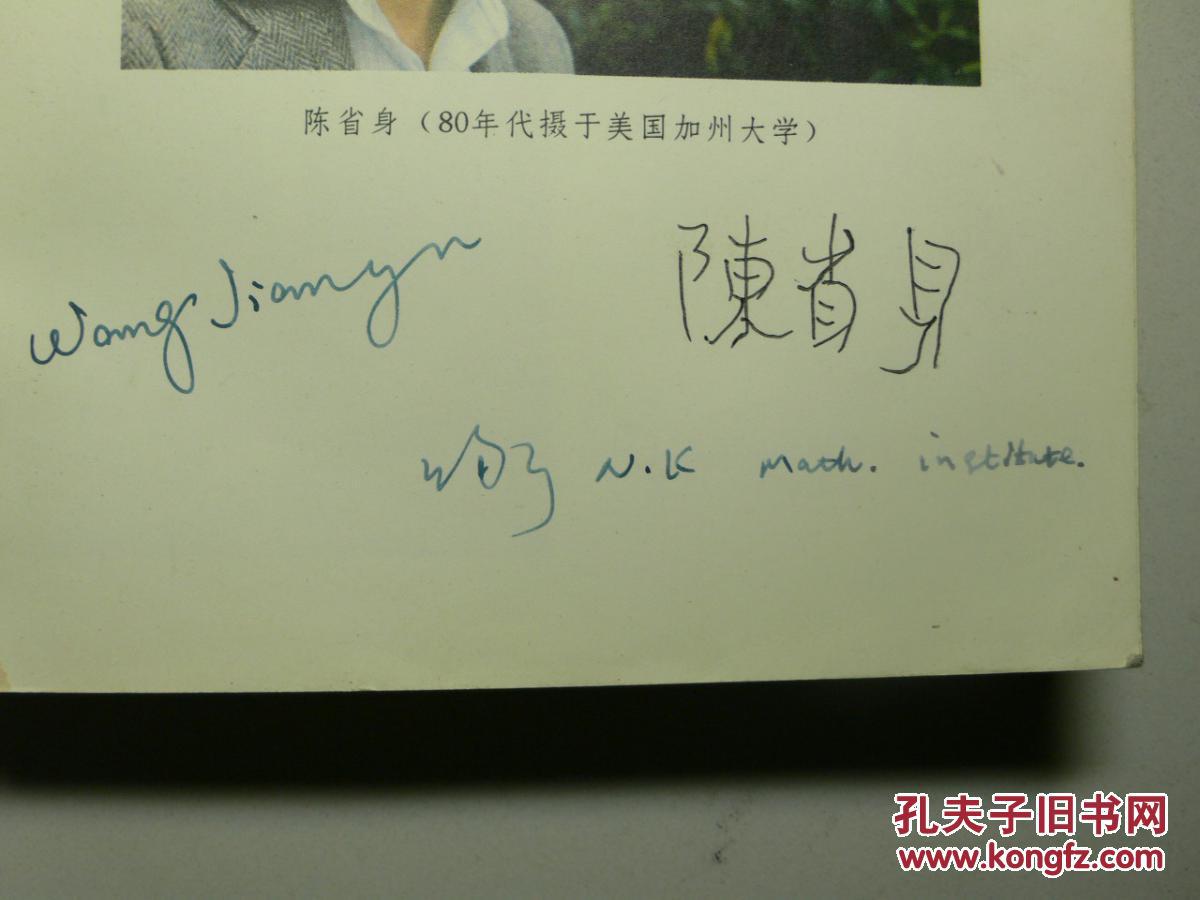 陈省身（80年代摄于美国加州大学）
Wang Jianyn
陳省身
N.K math. institute.
孔夫子旧书网
www.kongfz.com